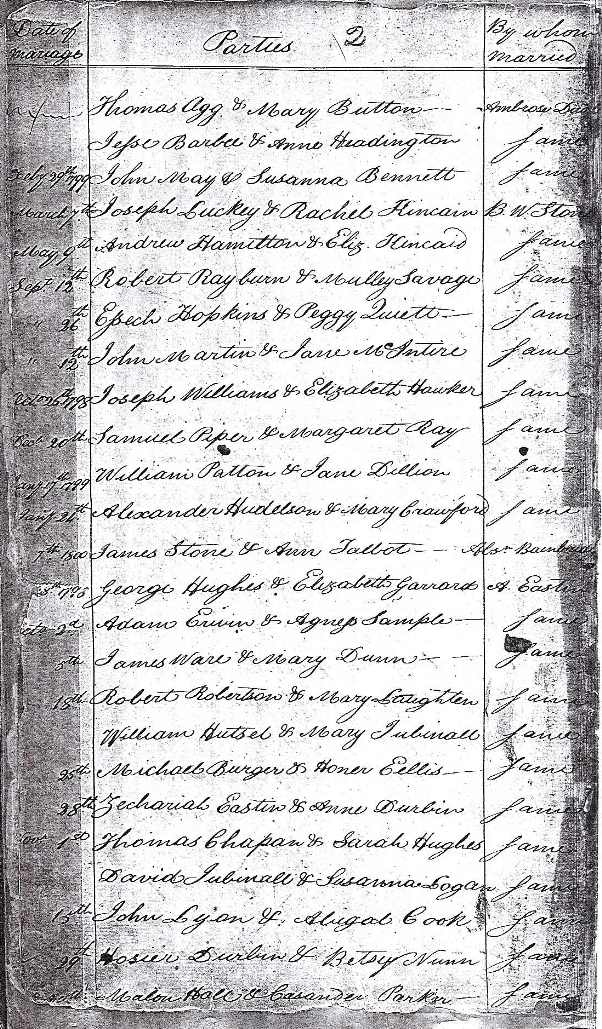 Date of mariage Parties 2 By whom married
Thomas Agg & Mary Button Ambrose
Jesse Barbee & Anne Headington Same
Feby 29th 1799 John May & Susanna Bennett Same
March 7th Joseph Luckey & Rachel Kincain B. W. Stone
May 9th Andrew Hamilton & Eliz. Kincaid Same
Sept 12th Robert Rayburn & Mulley Savage Same
" 26th Epech Hopkins & Peggy Quiett Same
" 12th John Martin & Jane McIntire Same
Joseph Williams & Elizabeth Hawker Same
20th Samuel Piper & Margaret Ray Same
William Patton & Jane Dillion Same
Alexander Hudelson & Mary Crawford Same
7th 1800 James Stone & Ann Talbot
George Hughes & Elizabeth Garrard A. Eastin
2d Adam Erwin & Agness Sample Same
5th James Ware & Mary Dunn Same
18th Robert Robertson & Mary Laughten Same
William Hutsel & Mary Jubinall Same
25th Michael Burger & Honer Eellis Same
28th Zechariah Eastin & Anne Durbin Same
Thomas Chapan & Sarah Hughes Same
David Jubinall & Susanna Logan Same
15th John Lyon & Abigal Cook Same
29th Hosier Durbin & Betsy Nunn Same
Malon Hall & Casander Parker Same